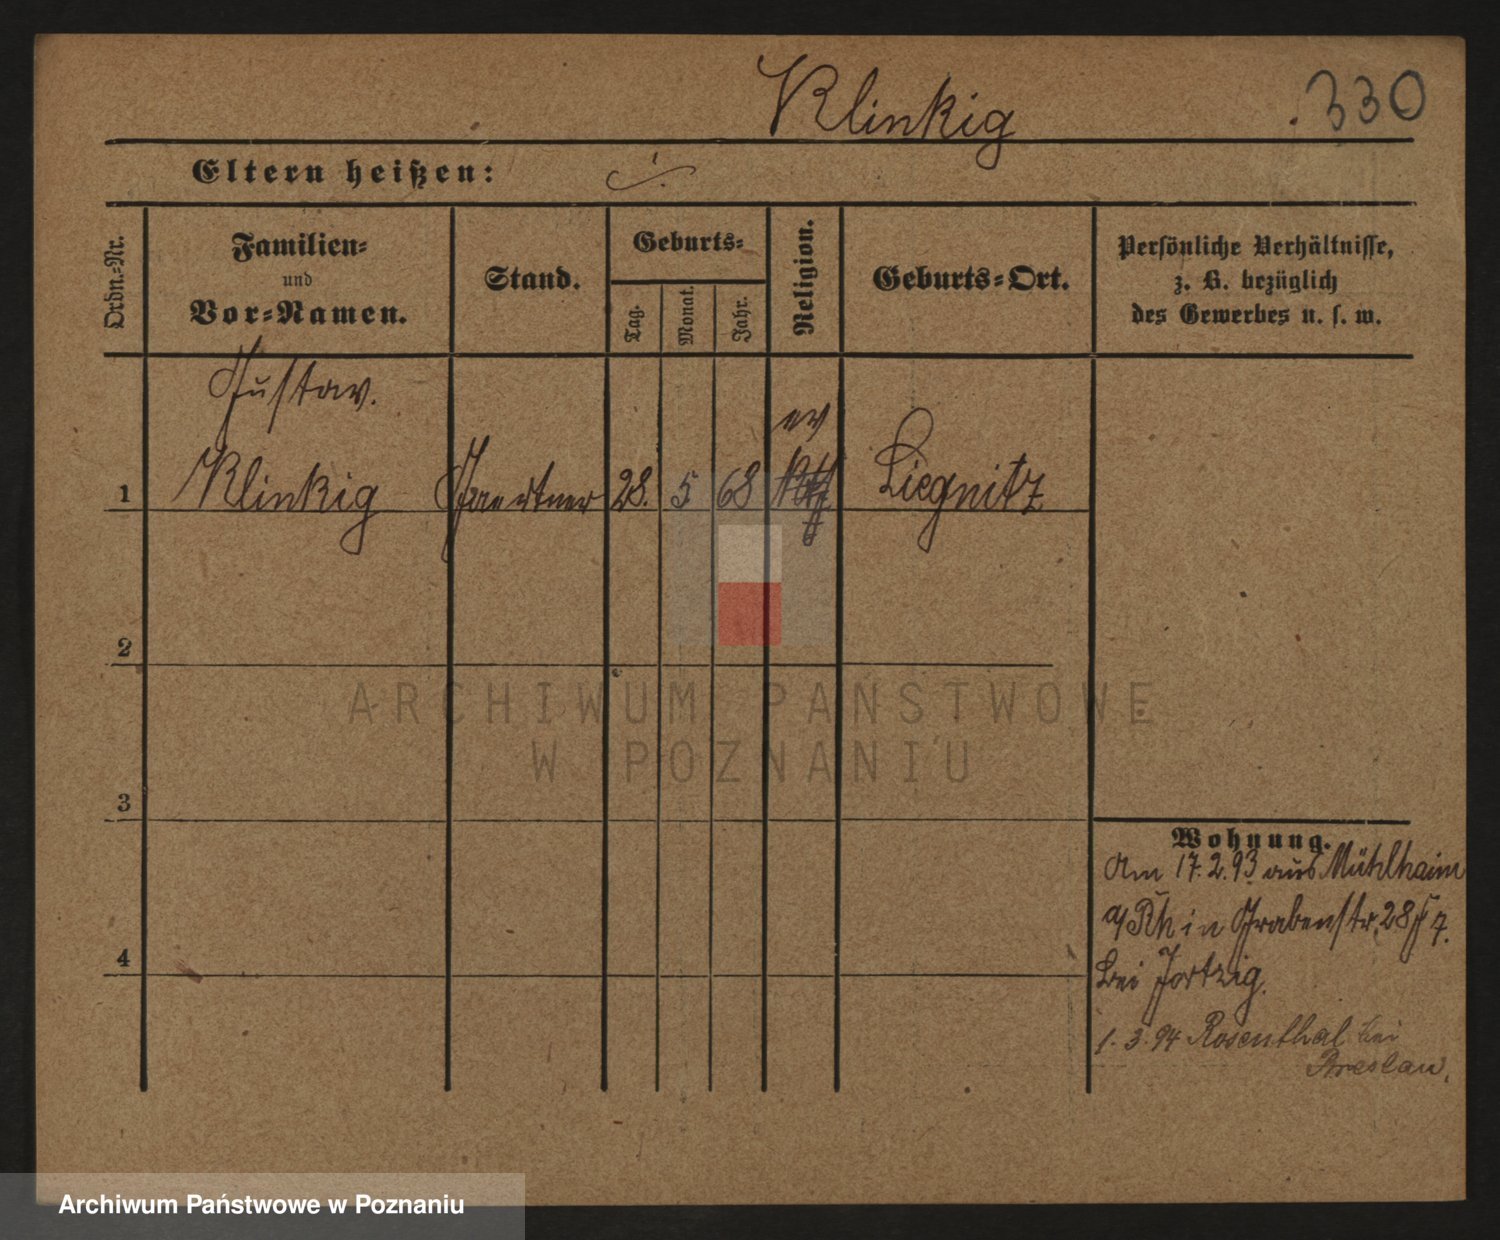 Klinkig
330
Eltern heißen: ./.
Ordn.=Nr.
Familien=
und
Vor=Namen.
Stand.
Geburts=
Tag.
Monat.
Jahr.
Religion.
Geburts=Ort.
Persönliche Verhältnisse,
z. B. bezüglich
des Gewerbes u. s. w.
Gustav.
ev
1 Klinkig Gaertner 28. 5 68 Liegnitz
2
3
4
Wohnung.
Am 17.2.93 aus Mühlhaim
a/Rh in Grabenstr. 28
bei Jortzig.
1.3.94 Rosenthal bei
Breslau.
ARCHIWUM PAŃSTWOWE
W POZNANIU
Archiwum Państwowe w Poznaniu